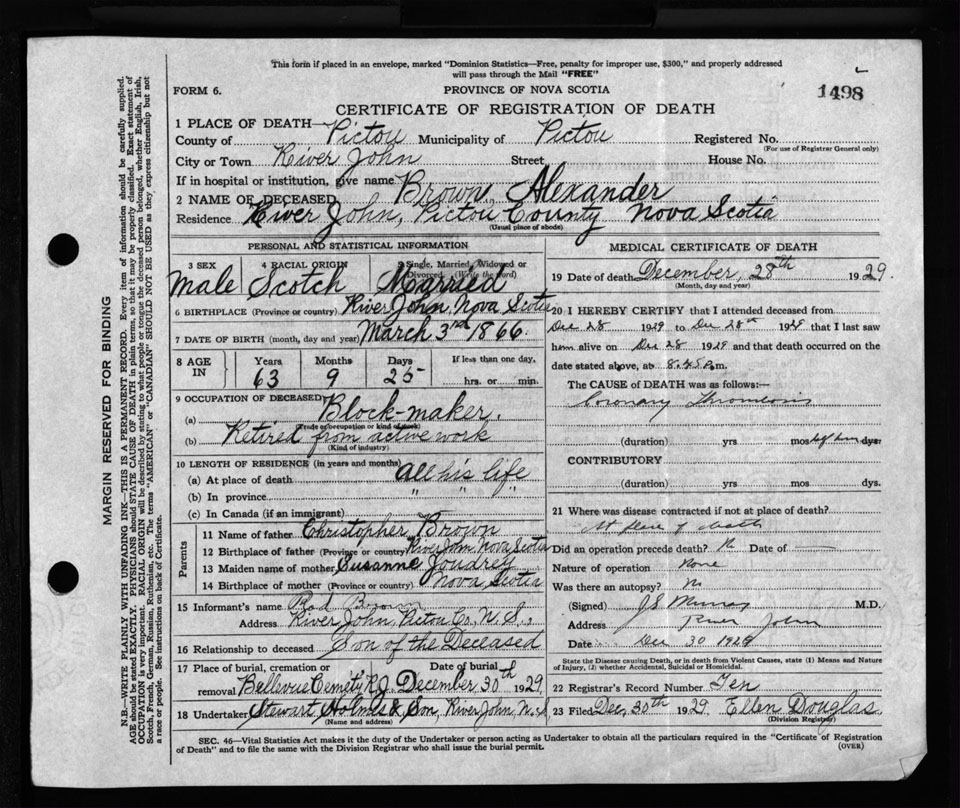 This form if placed in an envelope, marked "Dominion Statistics—Free, penalty for improper use, $300," and properly addressed
will pass through the Mail "FREE"
FORM 6.
PROVINCE OF NOVA SCOTIA
1498
CERTIFICATE OF REGISTRATION OF DEATH
1 PLACE OF DEATH—
County of Pictou Municipality of Pictou Registered No.
(For use of Registrar General only)
City or Town River John Street House No.
If in hospital or institution, give name
2 NAME OF DECEASED Brown, Alexander
Residence River John, Pictou County Nova Scotia
(Usual place of abode)
PERSONAL AND STATISTICAL INFORMATION
3 SEX 4 RACIAL ORIGIN 5 Single, Married, Widowed or
Divorced (Write the word)
Male Scotch Married
6 BIRTHPLACE (Province or country) River John, Nova Scotia
7 DATE OF BIRTH (month, day and year) March 3rd 1866
8 AGE IN Years Months Days If less than one day,
63 9 25 hrs. or min.
9 OCCUPATION OF DECEASED
(a) Block-maker.
(Trade or occupation or kind of work)
(b) Retired from active work
(Kind of industry)
10 LENGTH OF RESIDENCE (in years and months)
(a) At place of death all his life
(b) In province " " "
(c) In Canada (if an immigrant)
Parents
11 Name of father Christopher Brown
12 Birthplace of father (Province or country) River John, Nova Scotia
13 Maiden name of mother Susanne Joudrey
14 Birthplace of mother (Province or country) Nova Scotia
15 Informant's name Brown
Address River John, Pictou Co, N. S.,
16 Relationship to deceased Son of the Deceased
17 Place of burial, cremation or removal Bellevue Cemety R.J. Date of burial December 30th 1929
18 Undertaker Stewart Holmes & Son, River John, N.S
(Name and address)
MEDICAL CERTIFICATE OF DEATH
19 Date of death December, 28th 1929.
(Month, day and year)
20 I HEREBY CERTIFY that I attended deceased from
Dec 28 1929 to Dec 28th 1929 that I last saw
him alive on Dec 28 1929 and that death occurred on
date stated above, at 8.45 p.m.
The CAUSE of DEATH was as follows:—
Coronary Thrombosis
(duration) yrs mos dys.
CONTRIBUTORY
(duration) yrs. mos. dys.
21 Where was disease contracted if not at place of death?
At place of death
Did an operation precede death? No Date of
Nature of operation None
Was there an autopsy? No
(Signed) J S Murray M.D.
Address River John
Date Dec 30 1929
State the Disease causing Death, or in death from Violent Causes, state (1) Means and Nature
of Injury, (2) whether Accidental, Suicidal or Homicidal.
22 Registrar's Record Number Ten
23 Filed Dec, 30th 1929 Ellen Douglas
(Division Registrar)
SEC. 46—Vital Statistics Act makes it the duty of the Undertaker or person acting as Undertaker to obtain all the particulars required in the "Certificate of Registration
of Death" and to file the same with the Division Registrar who shall issue the burial permit.
(OVER)
MARGIN RESERVED FOR BINDING
N.B.—WRITE PLAINLY WITH UNFADING INK—THIS IS A PERMANENT RECORD. Every item of information should be carefully supplied.
AGE should be stated EXACTLY. PHYSICIANS should STATE CAUSE OF DEATH in plain terms, so that it may be properly classified. Exact statement of
OCCUPATION is very important. RACIAL ORIGIN will be described by stating to what people or tongue the deceased person belonged, whether English, Irish,
Scotch, French, German, Russian, Ruthenian, etc. The terms "AMERICAN" or "CANADIAN" SHOULD NOT BE USED as they express citizenship but not
a race or people. See instructions on back of Certificate.